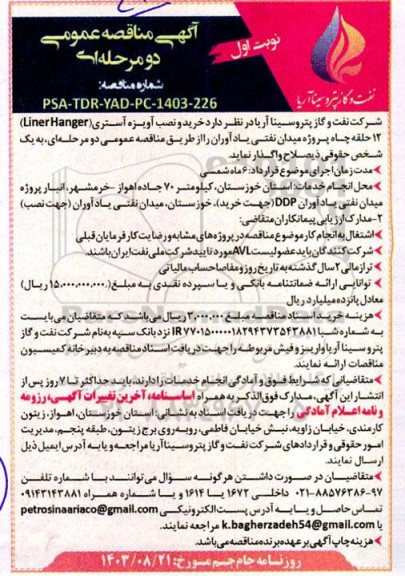 آگهی مناقصه عمومی
دو مرحله‌ای
نوبت اول
شماره مناقصه:
PSA-TDR-YAD-PC-1403-226
نفت و گاز پتروسینا آریا
شرکت نفت و گاز پتروسینا آریا در نظر دارد خرید و نصب آویزه آستری (Liner Hanger)
۱۲ حلقه چاه پروژه میدان نفتی یادآوران را از طریق مناقصه عمومی دو مرحله‌ای، به یک
شخص حقوقی ذیصلاح واگذار نماید.
مدت زمان اجرای موضوع قرارداد: ۶ ماه شمسی
محل انجام خدمات: استان خوزستان، کیلومتر ۷۰ جاده اهواز - خرمشهر، انبار پروژه
میدان نفتی یادآوران DDP (جهت خرید)، خوزستان، میدان نفتی یادآوران (جهت نصب)
۲- مدارک ارزیابی پیمانکاران متقاضی:
اشتغال به انجام کار موضوع مناقصه در پروژه‌های مشابه و رضایت کارفرمایان قبلی
شرکت کنندگان باید عضو لیست AVL مورد تایید شرکت ملی نفت ایران باشند.
ترازمالی ۲ سال گذشته به تاریخ روز و مفاصاحساب مالیاتی
توانایی ارائه ضمانتنامه بانکی و یا سپرده نقدی به مبلغ (۱۵،۰۰۰،۰۰۰،۰۰۰ ریال)
معادل پانزده میلیارد ریال
هزینه خرید اسناد مناقصه مبلغ ۳،۰۰۰،۰۰۰ ریال می‌باشد که متقاضیان می‌بایست
به شماره شبا IR۷۷۰۱۵۰۰۰۰۰۱۸۲۹۴۳۷۳۵۴۳۸۸۱ نزد بانک سپه به نام شرکت نفت و گاز
پتروسینا آریا واریز و فیش مربوطه را جهت دریافت اسناد مناقصه به دبیرخانه کمیسیون
مناقصات ارائه نمایند.
متقاضیانی که شرایط فوق و آمادگی انجام خدمات را دارند، باید حداکثر تا ۷ روز پس از
انتشار این آگهی، مدارک فوق‌الذکر به همراه اساسنامه، آخرین تغییرات آگهی، رزومه
و نامه اعلام آمادگی را جهت دریافت اسناد به نشانی: استان خوزستان، اهواز، زیتون
کارمندی، خیابان زاویه، نبش خیابان فاطمی، روبه‌روی برج زیتون، طبقه پنجم، مدیریت
امور حقوقی و قراردادهای شرکت نفت و گاز پتروسینا آریا مراجعه و یا به آدرس ایمیل ذیل
ارسال نمایند.
متقاضیان در صورت داشتن هرگونه سؤال می‌توانند با شماره تلفن
۰۲۱-۸۸۵۷۶۳۸۶-۹۷ داخلی ۱۶۷۲ یا ۱۶۱۴ و یا شماره همراه ۰۹۱۴۳۱۴۳۸۸۱
تماس حاصل و یا به آدرس پست الکترونیکی petrosinaariaco@gmail.com
یا k.bagherzadeh54@gmail.com مراجعه نمایند.
هزینه چاپ آگهی بر عهده برنده مناقصه می‌باشد.
روزنامه جام جم مورخ: ۱۴۰۳/۰۸/۲۱